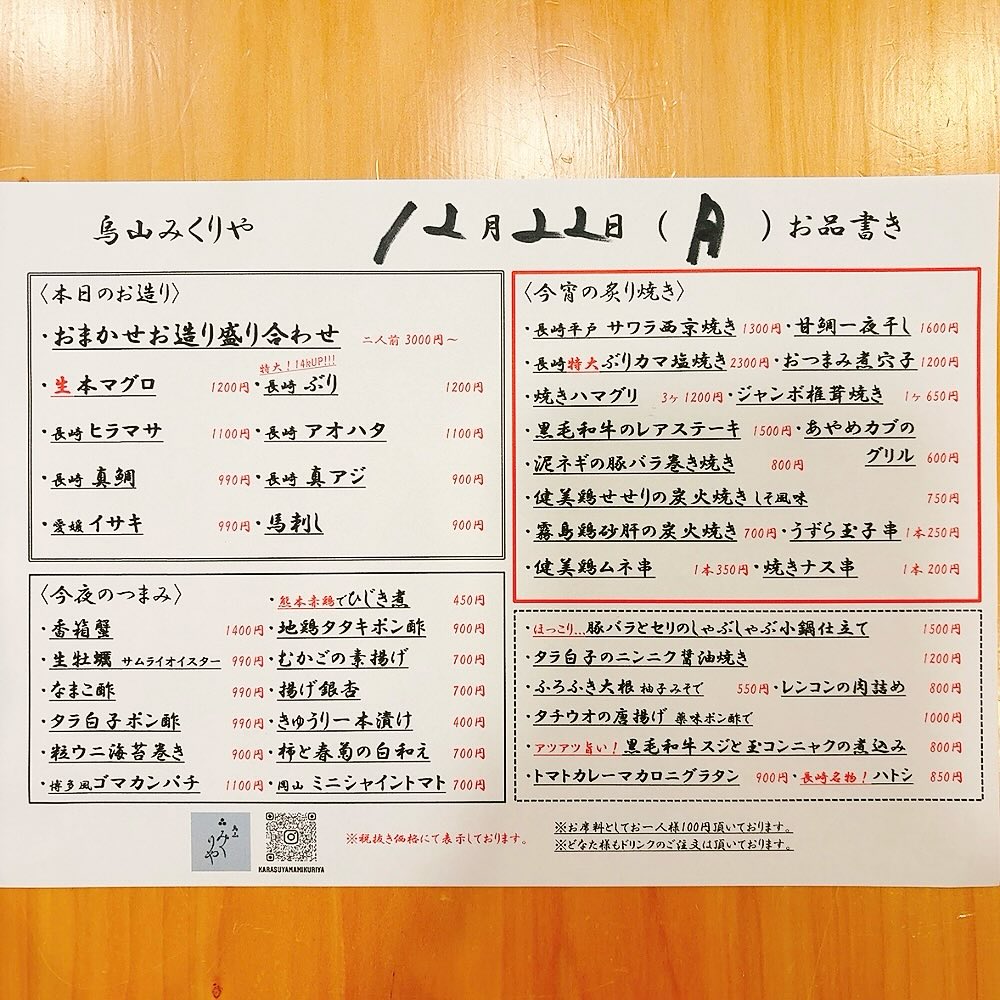 烏山みくりや 12月22日(月)お品書き
〈本日のお造り〉
・おまかせお造り盛り合わせ 二人前 3000円～
特大！14kUP!!!
・生本マグロ 1200円・長崎 ぶり 1200円
・長崎 ヒラマサ 1100円・長崎 アオハタ 1100円
・長崎 真鯛 990円・長崎 真アジ 900円
・愛媛 イサキ 990円・馬刺し 900円
〈今夜のつまみ〉 ・熊本赤鶏でひじき煮 450円
・香箱蟹 1400円・地鶏タタキポン酢 900円
・生牡蠣 サムライオイスター 990円・むかごの素揚げ 700円
・なまこ酢 990円・揚げ銀杏 700円
・タラ白子ポン酢 990円・きゅうり一本漬け 400円
・粒ウニ海苔巻き 900円・柿と春菊の白和え 700円
・博多風ゴマカンパチ 1100円・岡山 ミニシャイントマト 700円
〈今宵の炙り焼き〉
・長崎平戸 サワラ西京焼き 1300円・甘鯛一夜干し 1600円
・長崎特大ぶりカマ塩焼き 2300円・おつまみ煮穴子 1200円
・焼きハマグリ 3ヶ 1200円・ジャンボ椎茸焼き 1ヶ 650円
・黒毛和牛のレアステーキ 1500円・あやめカブの
・泥ネギの豚バラ巻き焼き 800円 グリル 600円
・健美鶏せせりの炭火焼き しそ風味 750円
・霧島鶏砂肝の炭火焼き 700円・うずら玉子串 1本250円
・健美鶏ムネ串 1本350円・焼きナス串 1本 200円
・ほっこり...豚バラとセリのしゃぶしゃぶ小鍋仕立て 1500円
・タラ白子のニンニク醤油焼き 1200円
・ふろふき大根 柚子みそで 550円・レンコンの肉詰め 800円
・タチウオの唐揚げ 薬味ポン酢で 1000円
・アツアツ旨い！黒毛和牛スジと玉コンニャクの煮込み 800円
・トマトカレーマカロニグラタン 900円・長崎名物！ハトシ 850円
烏山
みくりや
KARASUYAMAMIKURIYA
※税抜き価格にて表示しております。
※お席料としてお一人様100円頂いております。
※どなた様もドリンクのご注文は頂いております。